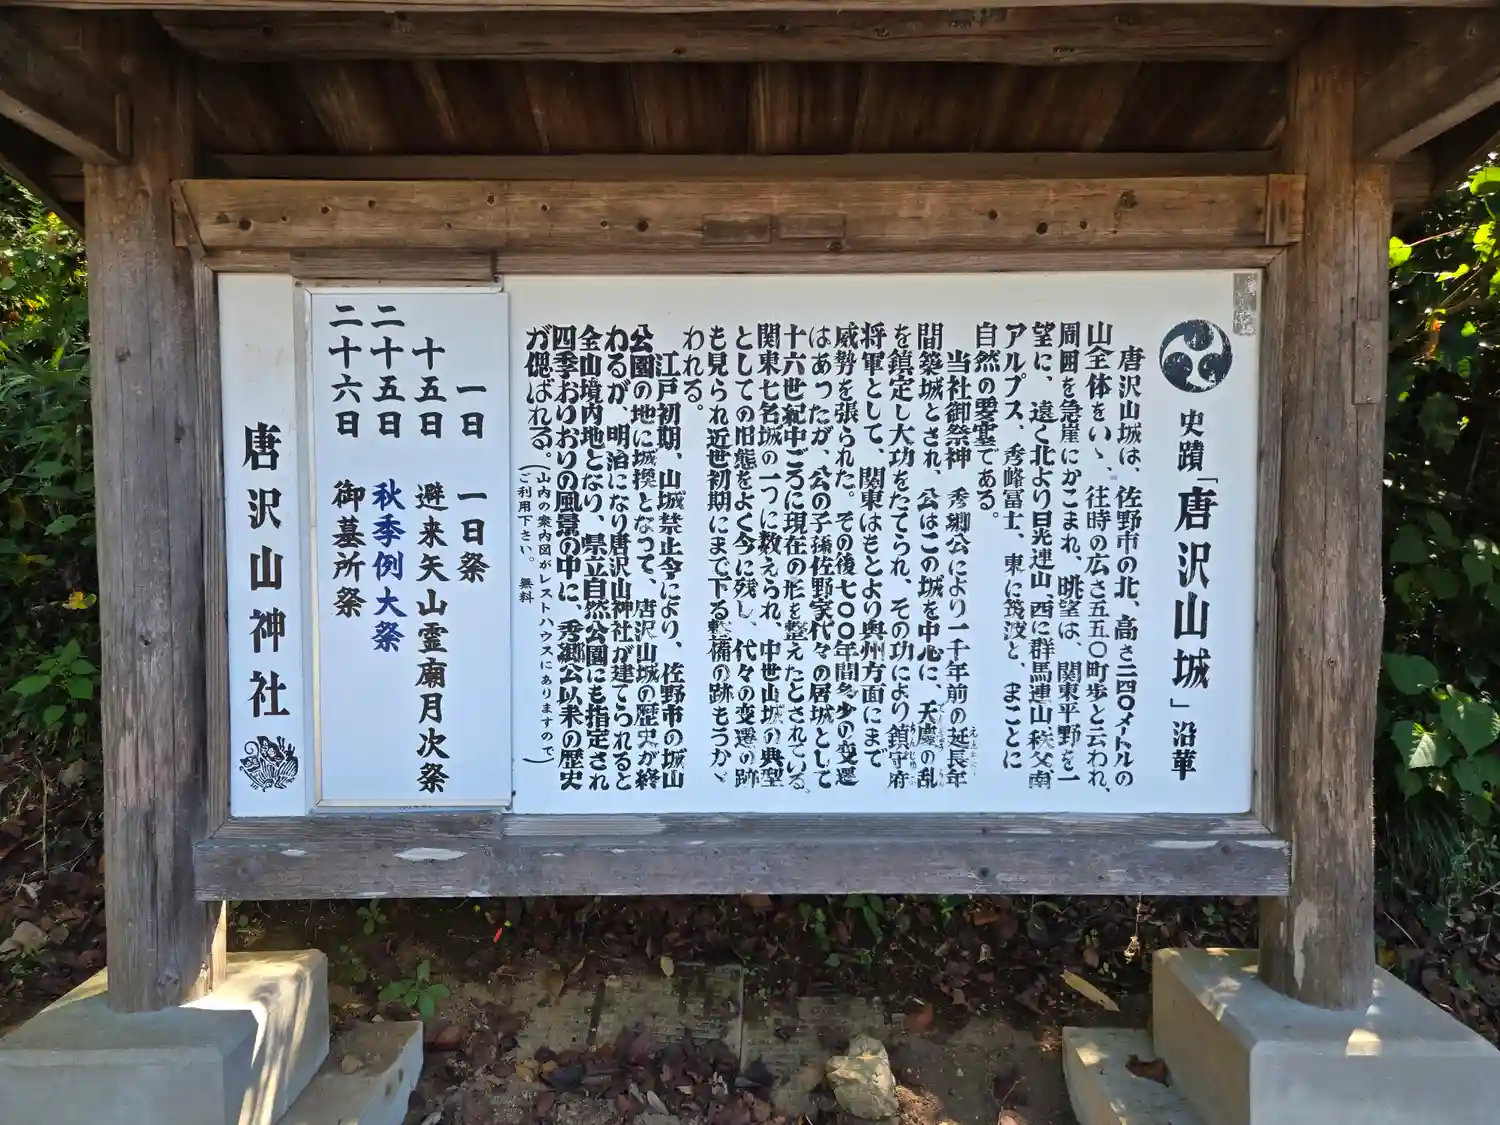 史蹟「唐沢山城」沿革
唐沢山城は、佐野市の北、高さ二四〇メートルの
山全体をいゝ、往時の広さ五五〇町歩と云われ、
周囲を急崖にかこまれ、眺望は、関東平野を一
望に、遠く北より日光連山、西に群馬連山秩父南
アルプス、秀峰冨士、東に筑波と、まことに
自然の要塞である。
当社御祭神 秀郷公により一千年前の延長年
間築城とされ、公はこの城を中心に、天慶の乱
を鎮定し大功をたてられ、その功により鎮守府
将軍として、関東はもとより奥州方面にまで
威勢を張られた。その後七〇〇年間多少の変遷
はあったが、公の子孫佐野家代々の居城として
十六世紀中ごろに現在の形を整えたとされている。
関東七名城の一つに数えられ、中世山城の典型
としての旧態をよく今に残し、代々の変遷の跡
も見られ近世初期にまで下る整備の跡もうかゞ
われる。
江戸初期、山城禁止令により、佐野市の城山
公園の地に城換となって、唐沢山城の歴史が終
わるが、明治になり唐沢山神社が建てられると
全山境内地となり、県立自然公園にも指定され
四季おりおりの風景の中に、秀郷公以来の歴史
が偲ばれる。
(山内の案内図がレストハウスにありますので)
ご利用下さい。 無料
一日 一日祭
十五日 避来矢山霊廟月次祭
二十五日 秋季例大祭
二十六日 御墓所祭
唐沢山神社